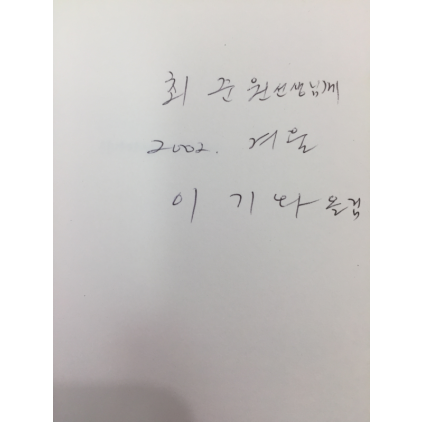 최 준원 선생님께
2002. 겨울
이 기 와 올림